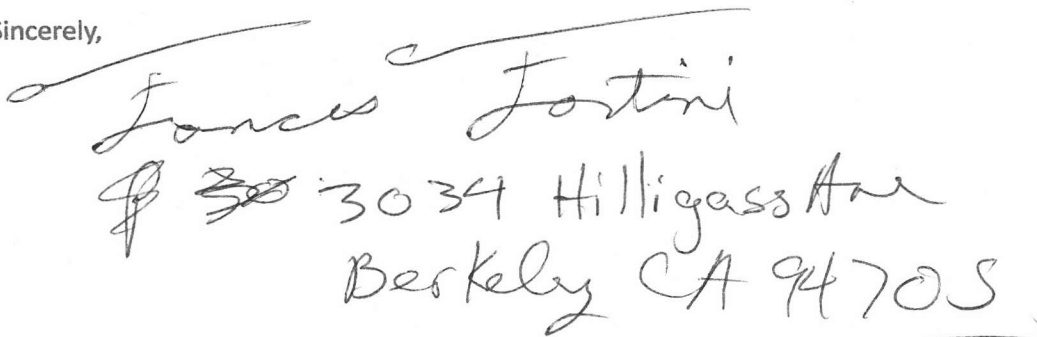 Sincerely,
Frances Fortini
3034 Hilligass Ave
Berkeley CA 94705